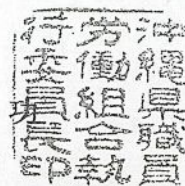 沖縄県職員
労働組合執
行委員長印
功